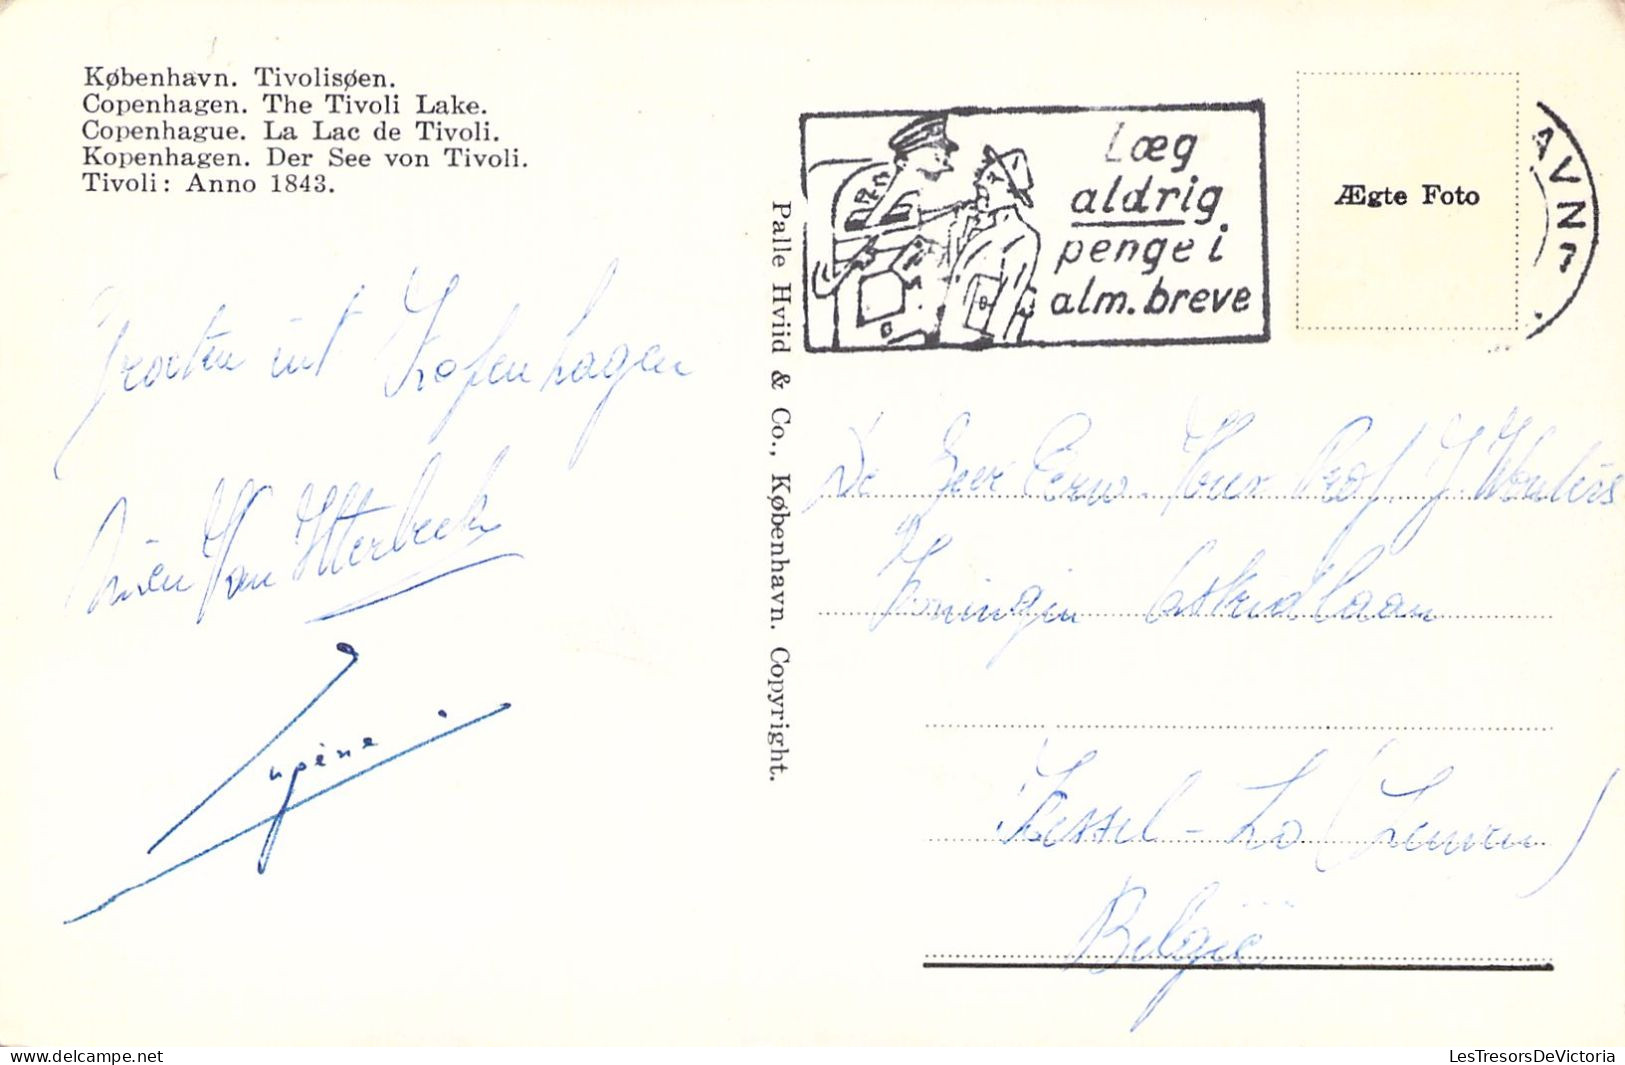 København. Tivolisøen.
Copenhagen. The Tivoli Lake.
Copenhague. La Lac de Tivoli.
Kopenhagen. Der See von Tivoli.
Tivoli: Anno 1843.
Groeten uit Kopenhagen
Van Itterbeek
Palle Hviid & Co., København. Copyright.
Læg
aldrig
penge i
alm. breve
Ægte Foto
AVN
De Heer Prof. J. Wouters
Koningin Astridlaan
Kessel-Lo (Leuven)
België
LesTresorsDeVictoria